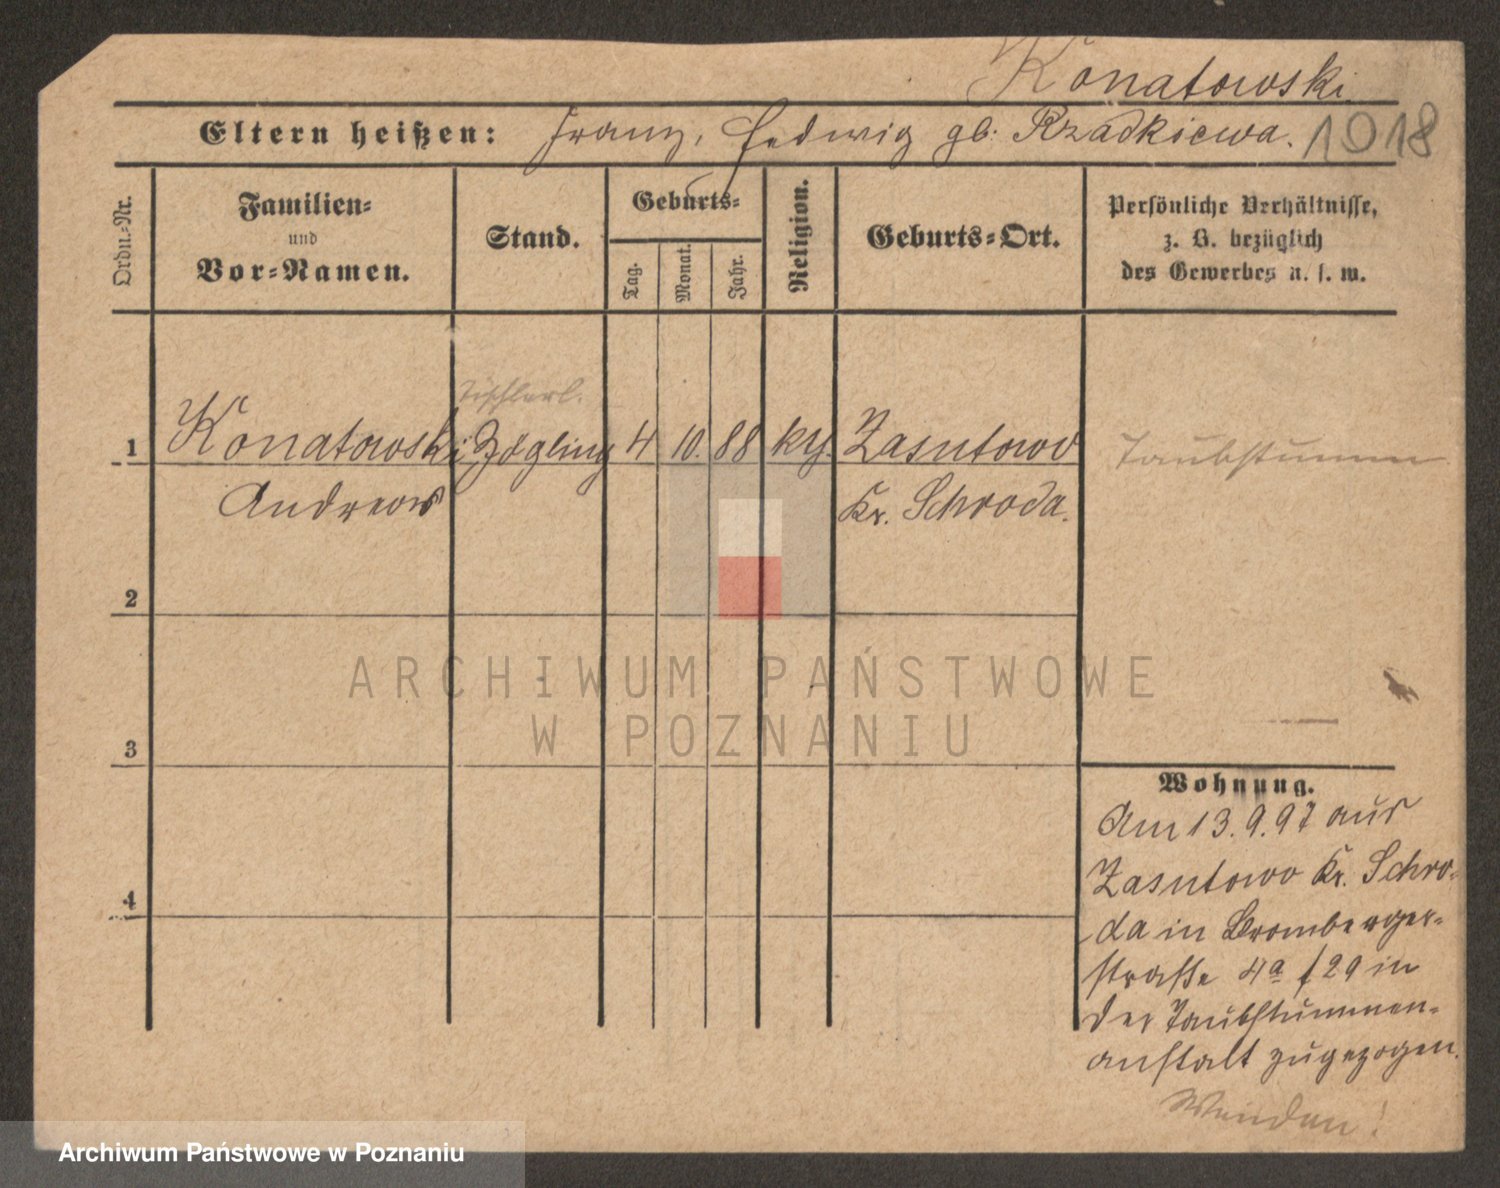 Konatowski
Eltern heißen: Franz, Hedwig gb: Rzadkiewa. 1018
Ordn.-Nr.
Familien-
und
Vor-Namen.
Stand.
Geburts-
Tag.
Monat.
Jahr.
Religion.
Geburts-Ort.
Persönliche Verhältnisse,
z. B. bezüglich
des Gewerbes u. s. w.
Tischlerl.
1 Konatowski Zögling 4 10. 88 kth. Zasutowo Taubstumm
Andreas Kr. Schroda.
2
3
4
Wohnung.
Am 13.9.97 aus
Zasutowo Kr. Schro-
da in Bromberger-
straße 4a /29 in
der Taubstummen-
anstalt zugezogen.
Wenden!
ARCHIWUM PAŃSTWOWE
W POZNANIU
Archiwum Państwowe w Poznaniu